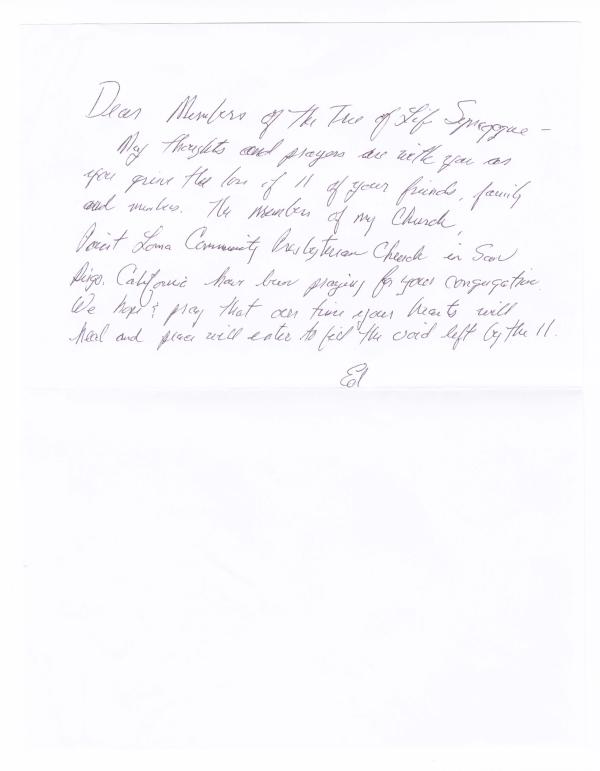 Dear Members of the Tree of Life Synagogue -
My thoughts and prayers are with you as
you grieve the loss of 11 of your friends, family
and members. The members of my Church,
Point Loma Community Presbyterian Church in San
Diego, California have been praying for your congregation.
We hope & pray that over time your hearts will
heal and peace will enter to fill the void left by the 11.
Ed